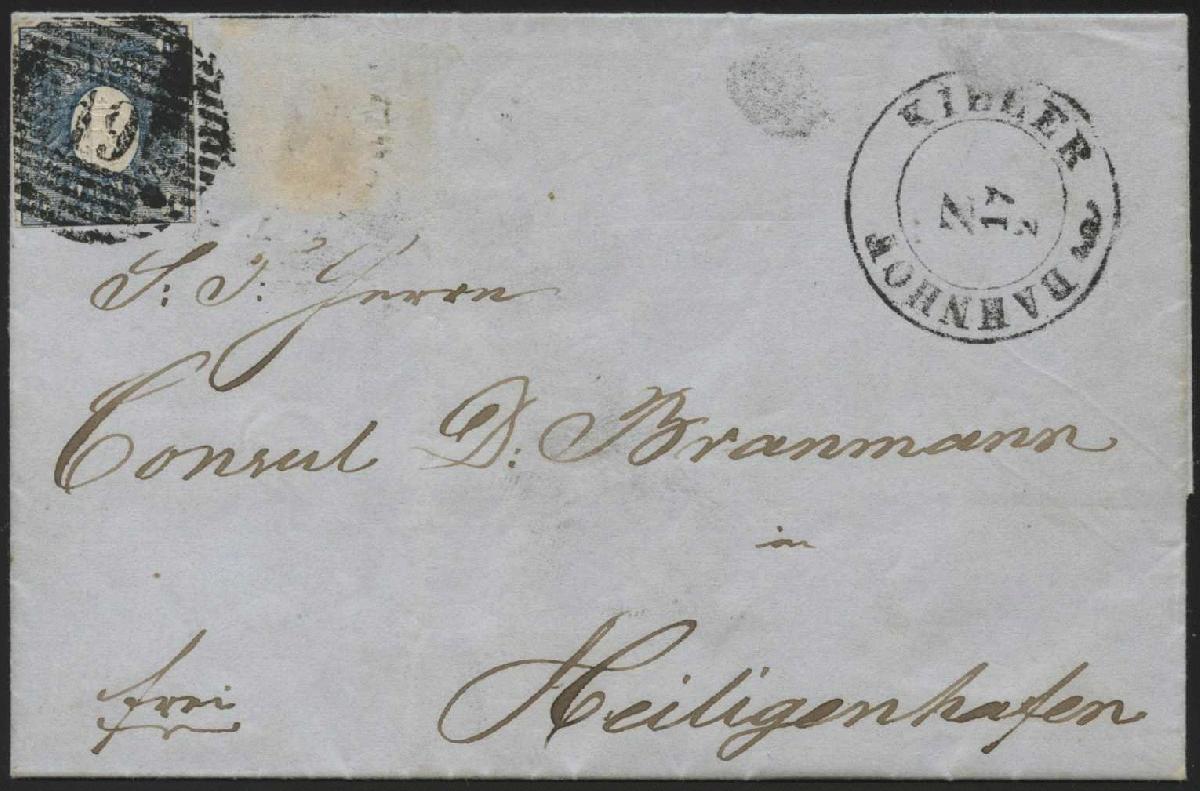 KIELER
BAHNHOF
Z
S: T: Herrn
Consul D: Branmann
in
Heiligenhafen
frei